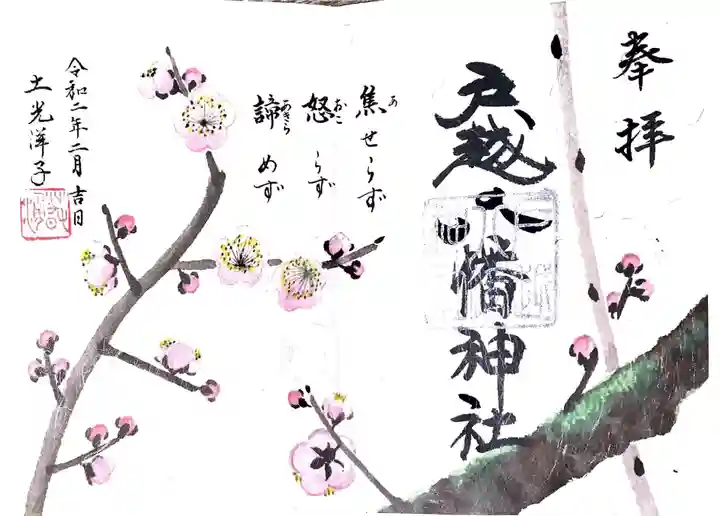 奉拝
戸越八幡神社
焦せらず
あ
怒らず
おこ
諦めず
あきら
令和二年二月吉日
土光洋子